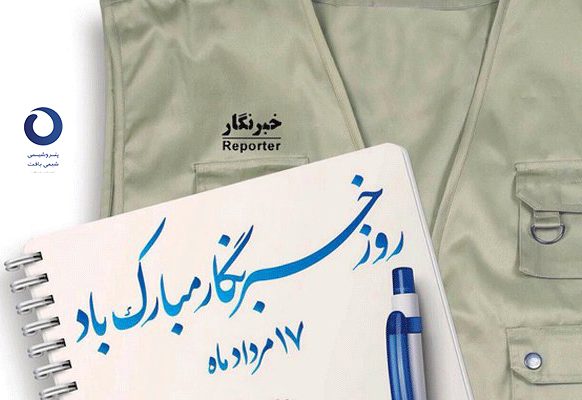 خبرنگار
Reporter
پتروشیمی
شیمی بافت
روز خبرنگار مبارک باد
۱۷ مرداد ماه